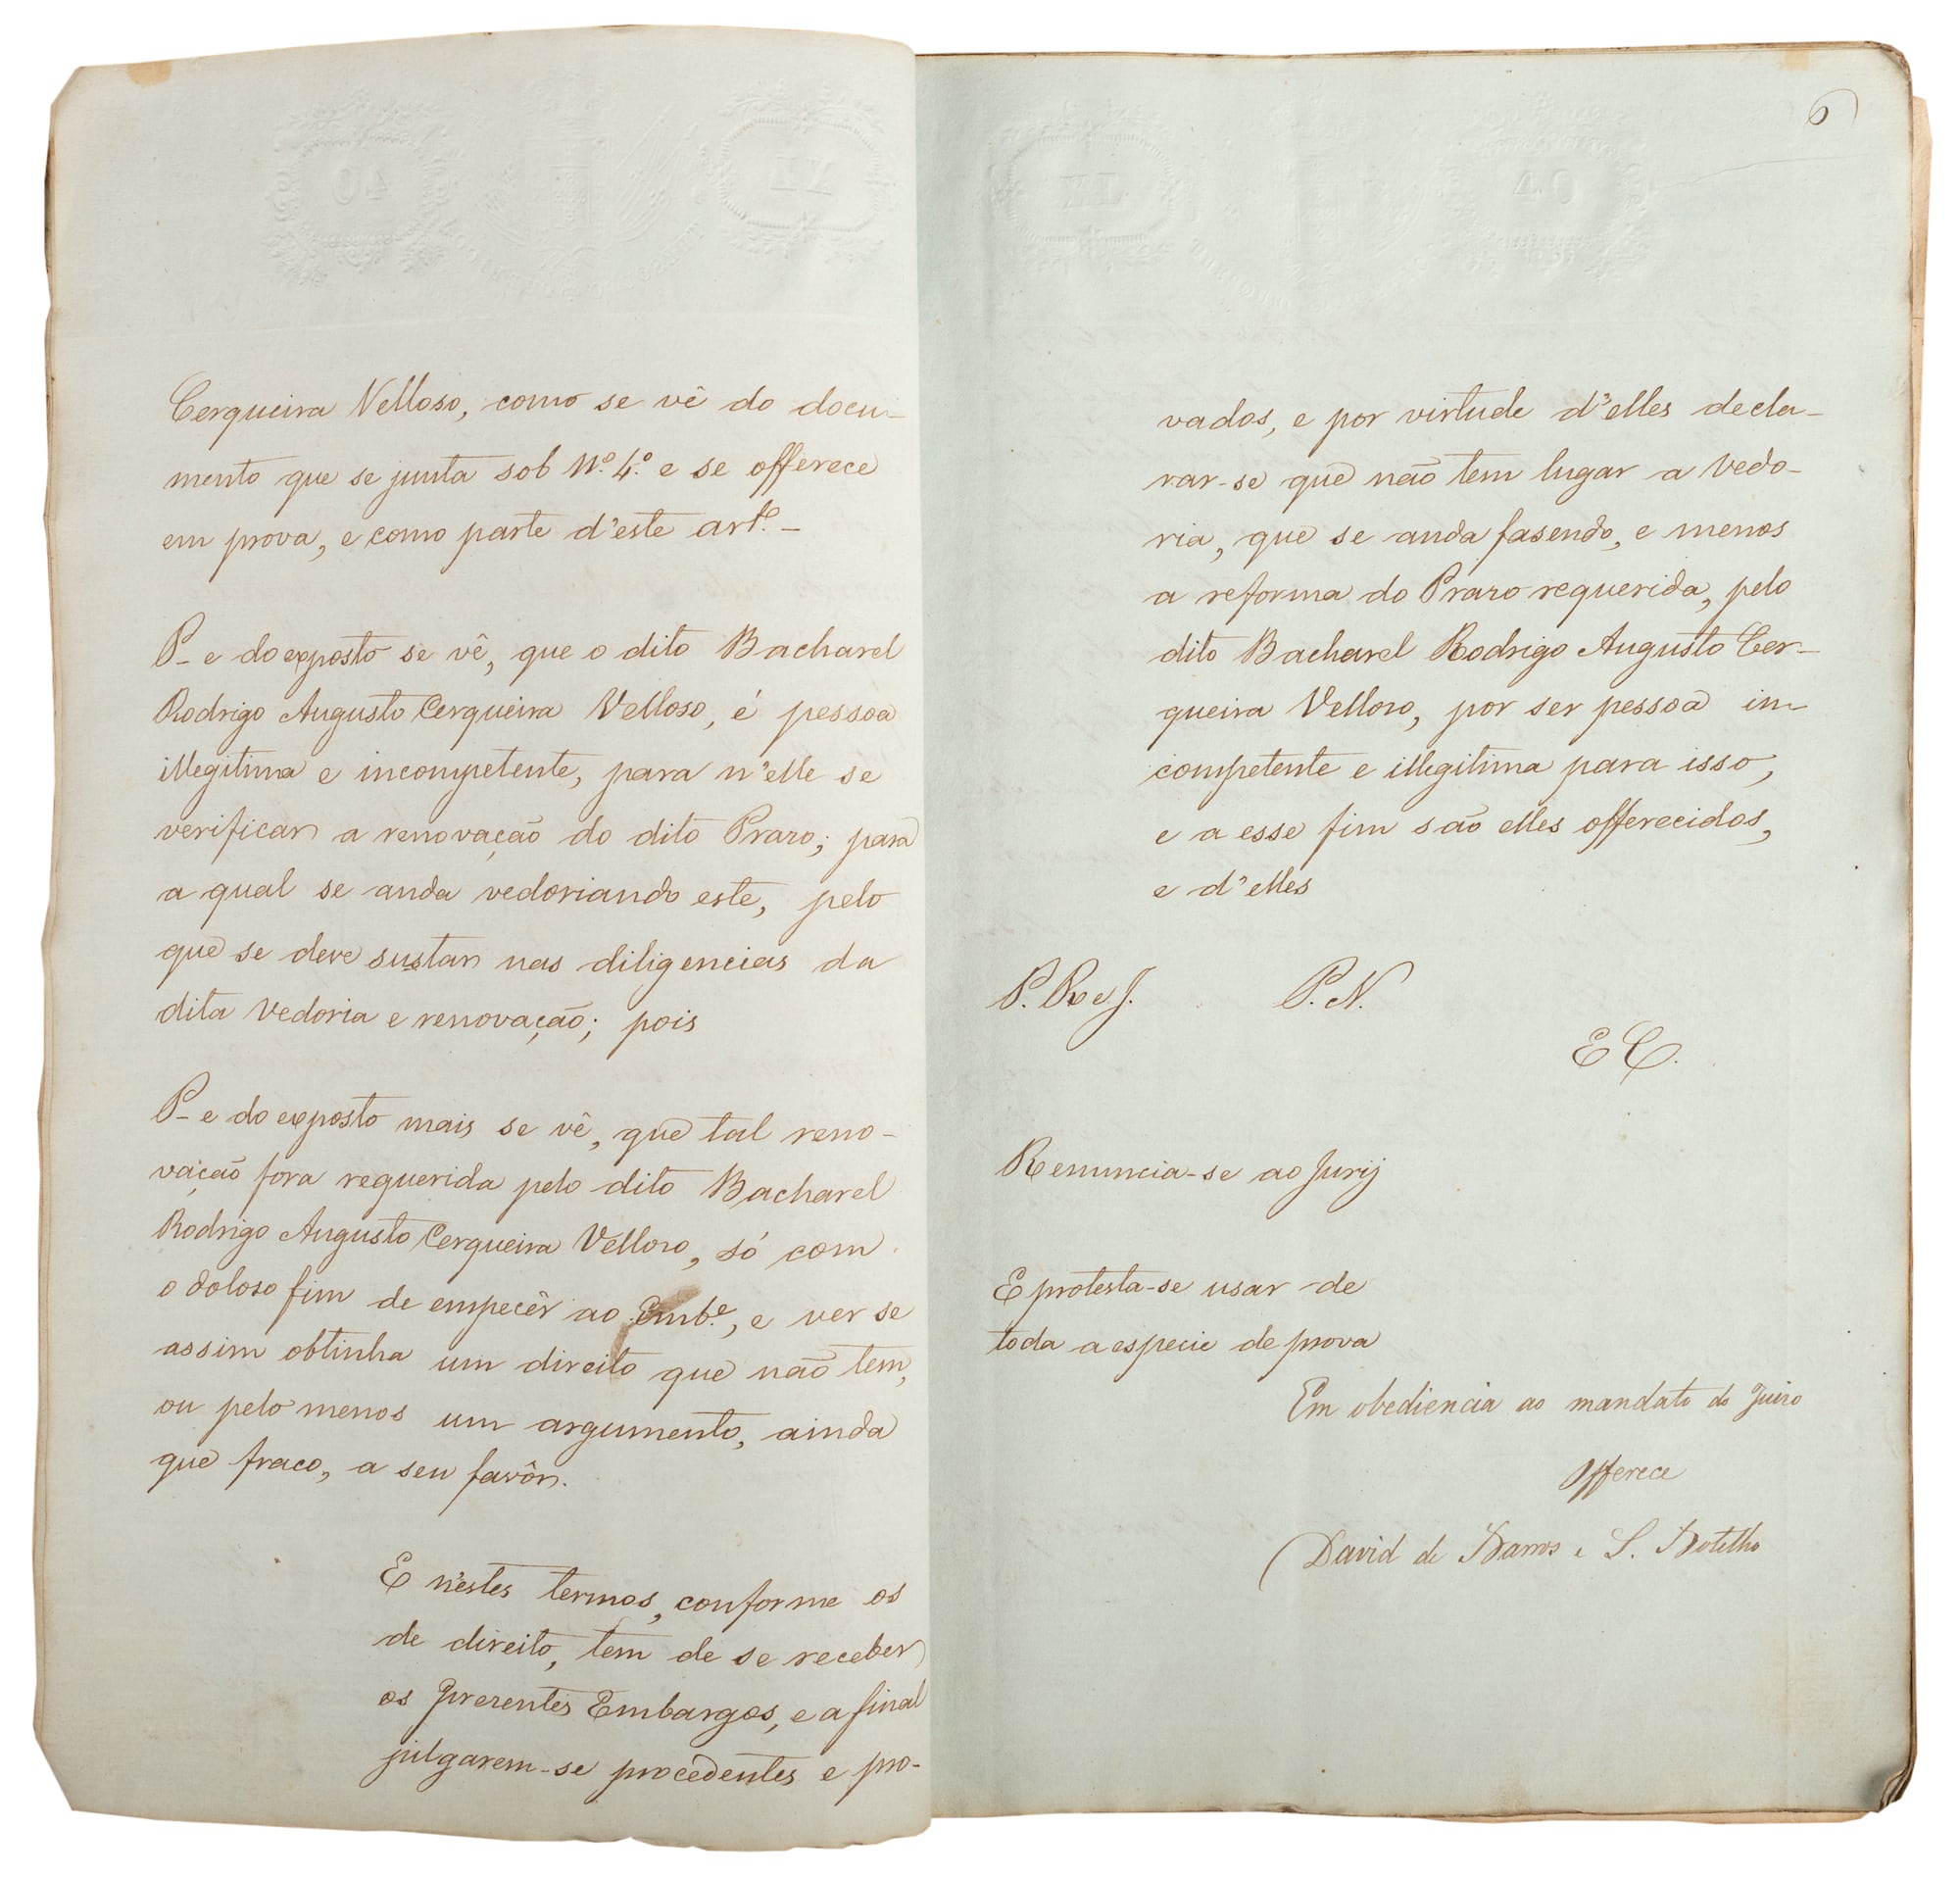 Cergueira Velloso, como se vê do docu-
mento que se junta sob Nº. 4º. e se offerece
em prova, e como parte d'este artº. -
P- e do exposto se vê, que o dito Bacharel
Rodrigo Augusto Cerqueira Velloso, é pessoa
illegitima e incompetente, para n'elle se
verificar a renovação do dito Prazo; para
a qual se anda vedoriando este, pelo
que se deve sustar nas diligencias da
dita Vedoria e renovação; pois
P- e do exposto mais se vê, que tal reno-
vação fora requerida pelo dito Bacharel
Rodrigo Augusto Cerqueira Vellozo, só com
o doloso fim de empecêr ao Embe., e ver se
assim obtinha um direito que não tem,
ou pelo menos um argumento, ainda
que fraco, a seu favôr.
E n'estes termos, conforme os
de direito, tem de se receber
os prezentes Embargos, e a final
julgarem-se procedentes e pro-
6
vados, e por virtude d'elles decla-
rar-se que não tem lugar a Vedo-
ria, que se anda fasendo, e menos
a reforma do Prazo requerida, pelo
dito Bacharel Rodrigo Augusto Cer-
queira Vellozo, por ser pessoa in-
competente e illegitima para isso,
e a esse fim são elles offerecidos,
e d'elles
P. R. e J. P. N.
E C.
Renuncia-se ao Jurij
E protesta-se usar de
toda a especie de prova
Em obediencia ao mandato do Juizo
Offerece
David de Barros e S. Botelho